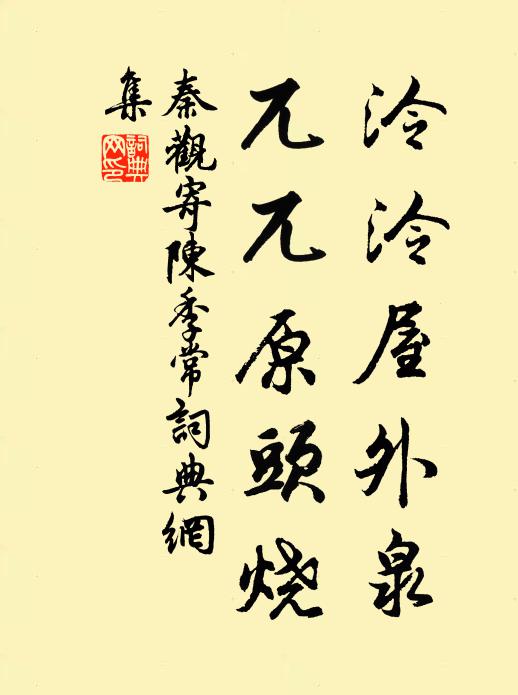 泠泠屋外泉
兀兀原頭烧
秦觀寄陳季常詞典網
集
詞典
网印